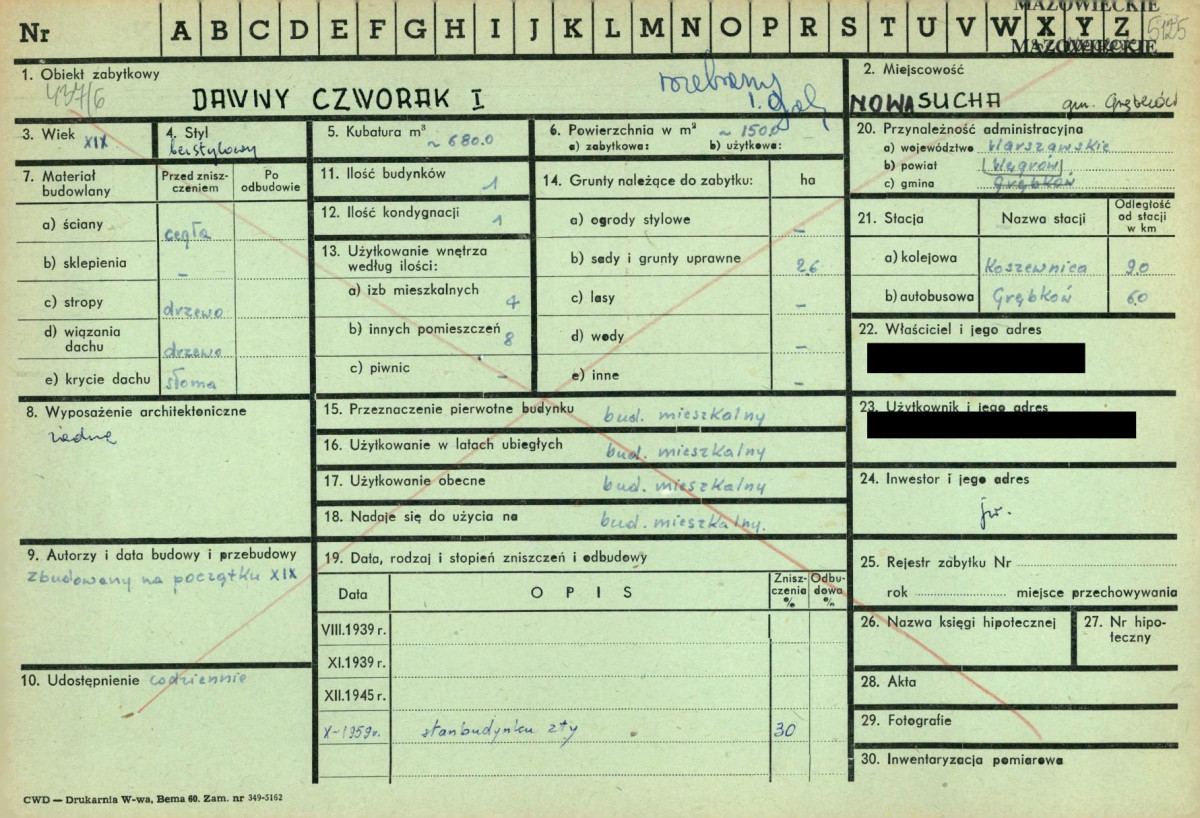 Nr A B C D E F G H I J K L M N O P R S T U V W X Y Z
MAZOWIECKIE
MAZOWIECKIE
5125
1. Obiekt zabytkowy
437/6
DAWNY CZWORAK I
rozebrany
2. Miejscowość
NOWA SUCHA gm. Grębków
3. Wiek XIX
4. Styl
bezstylowy
5. Kubatura m³
~ 680.0
6. Powierzchnia w m² ~ 150.0
a) zabytkowa: b) użytkowa:
7. Materiał budowlany
Przed zniszczeniem
Po odbudowie
a) ściany cegła
b) sklepienia –
c) stropy drzewo
d) wiązania dachu drzewo
e) krycie dachu słoma
8. Wyposażenie architektoniczne
żadne
9. Autorzy i data budowy i przebudowy
zbudowany na początku XIX
10. Udostępnienie codziennie
11. Ilość budynków 1
12. Ilość kondygnacji 1
13. Użytkowanie wnętrza
według ilości:
a) izb mieszkalnych 4
b) innych pomieszczeń 8
c) piwnic –
14. Grunty należące do zabytku: ha
a) ogrody stylowe –
b) sady i grunty uprawne 26
c) lasy –
d) wody –
e) inne –
15. Przeznaczenie pierwotne budynku bud. mieszkalny
16. Użytkowanie w latach ubiegłych bud. mieszkalny
17. Użytkowanie obecne bud. mieszkalny
18. Nadaje się do użycia na bud. mieszkalny.
19. Data, rodzaj i stopień zniszczeń i odbudowy
Data OPIS Zniszczenia % Odbudowa %
VIII.1939 r.
XI.1939 r.
XII.1945 r.
X-1959r. stan budynku zły 30
20. Przynależność administracyjna
a) województwo Warszawskie
b) powiat Węgrów
c) gmina Grębków
21. Stacja Nazwa stacji Odległość od stacji w km
a) kolejowa Koszewnica 9.0
b) autobusowa Grębków 6.0
22. Właściciel i jego adres
23. Użytkownik i jego adres
24. Inwestor i jego adres
jw.
25. Rejestr zabytku Nr
rok miejsce przechowywania
26. Nazwa księgi hipotecznej
27. Nr hipoteczny
28. Akta
29. Fotografie
30. Inwentaryzacja pomiarowa
CWD — Drukarnia W-wa, Bema 60. Zam. nr 349-5162